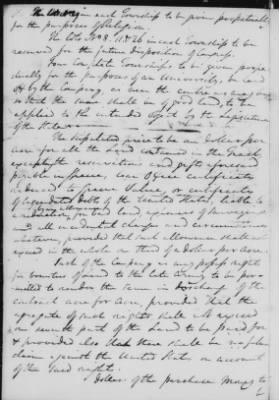 in each Township to be given perpetually
for the purposes of Religion
The lots No 8. 11. & 26 in each Township to be
reserved for the future disposition of Congress.
Four complete Townships to be given perpe-
tually for the purposes of an University, to be laid
off by the Company, as near the centre as may be
so that the same shall be of good land, to be
applied to the intended object by the Legislature
of the State
The stipulated price to be one dollar per
acre for all the Land contained in the Tract
excepting the reservations and gifts expressed
payable in specie, Loan Office certificates
reduced to specie Value, or certificates
of liquidated debts of the United States, liable to
a reduction for bad land, expences of surveying
and all incidental charges and circumstances
whatever, provided that such allowance shall not
exceed in the whole one third of a dollar per acre.
Such of the Company as may possess rights
for bounties of land to the late Army to be per-
mitted to render the same in discharge of the
contract acre for acre, provided that the
aggregate of such rights shall not exceed
one seventh part of the Land to be paid for
& provided also that there shall be no future
claim against the United States on account
of the said rights.
dollars of the purchase Money to